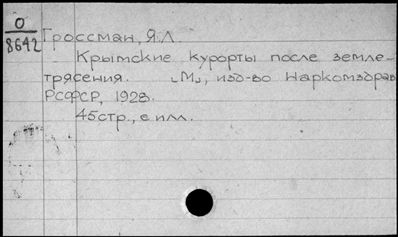 О
8642
Гроссман, Я.Л.
Крымские курорты после земле-
трясения. [М.], изд-во Наркомздрав
РСФСР, 1928.
45стр., с илл.